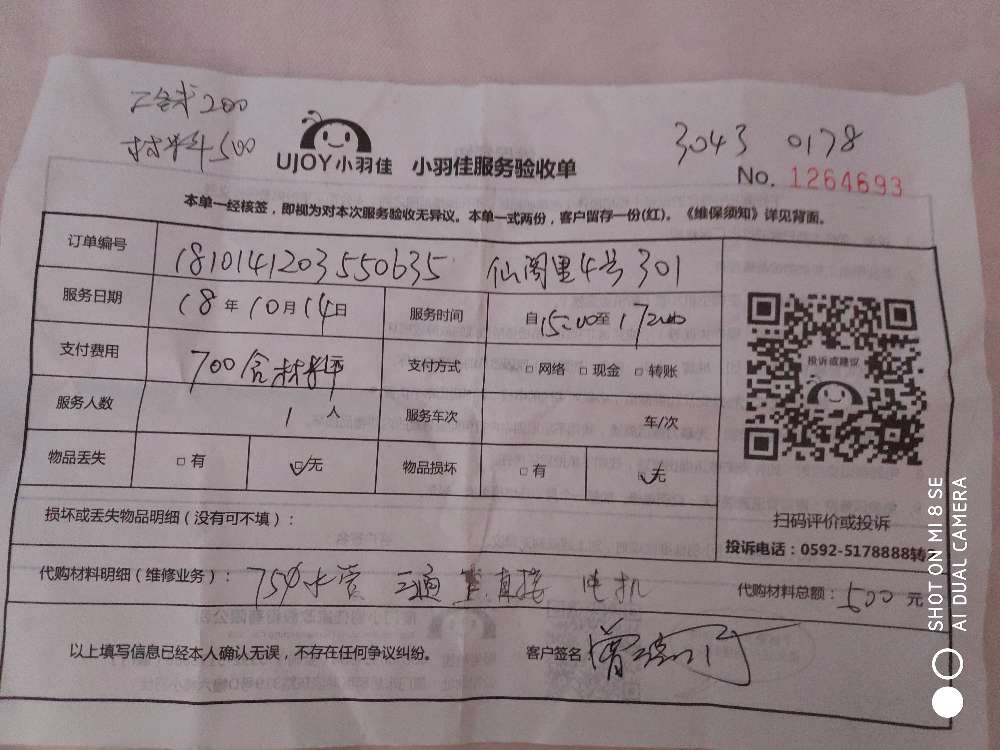 工钱200
材料500
UJOY小羽佳 小羽佳服务验收单
3043 0178
No. 1264693
本单一经核签，即视为对本次服务验收无异议。本单一式两份，客户留存一份(红)。《维保须知》详见背面。
订单编号 1810141203550635 仙阁里4号301
服务日期 18年10月14日 服务时间 自15:00至17:00
支付费用 700含材料 支付方式 □网络 □现金 □转账
服务人数 1人 服务车次 车/次
物品丢失 □有 ☑无 物品损坏 □有 ☑无
投诉或建议
扫码评价或投诉
投诉电话：0592-5178888转2
损坏或丢失物品明细（没有可不填）：
代购材料明细（维修业务）： 750水管 三通 直接 电机 代购材料总额：500元
以上填写信息已经本人确认无误，不存在任何争议纠纷。 客户签名
SHOT ON MI 8 SE
AI DUAL CAMERA